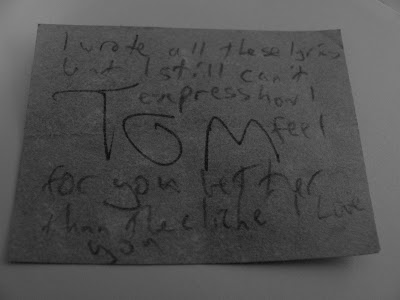 I wrote all these lyrics
but I still can't
express how I
TOM feel
for you better
than the cliche I Love
you